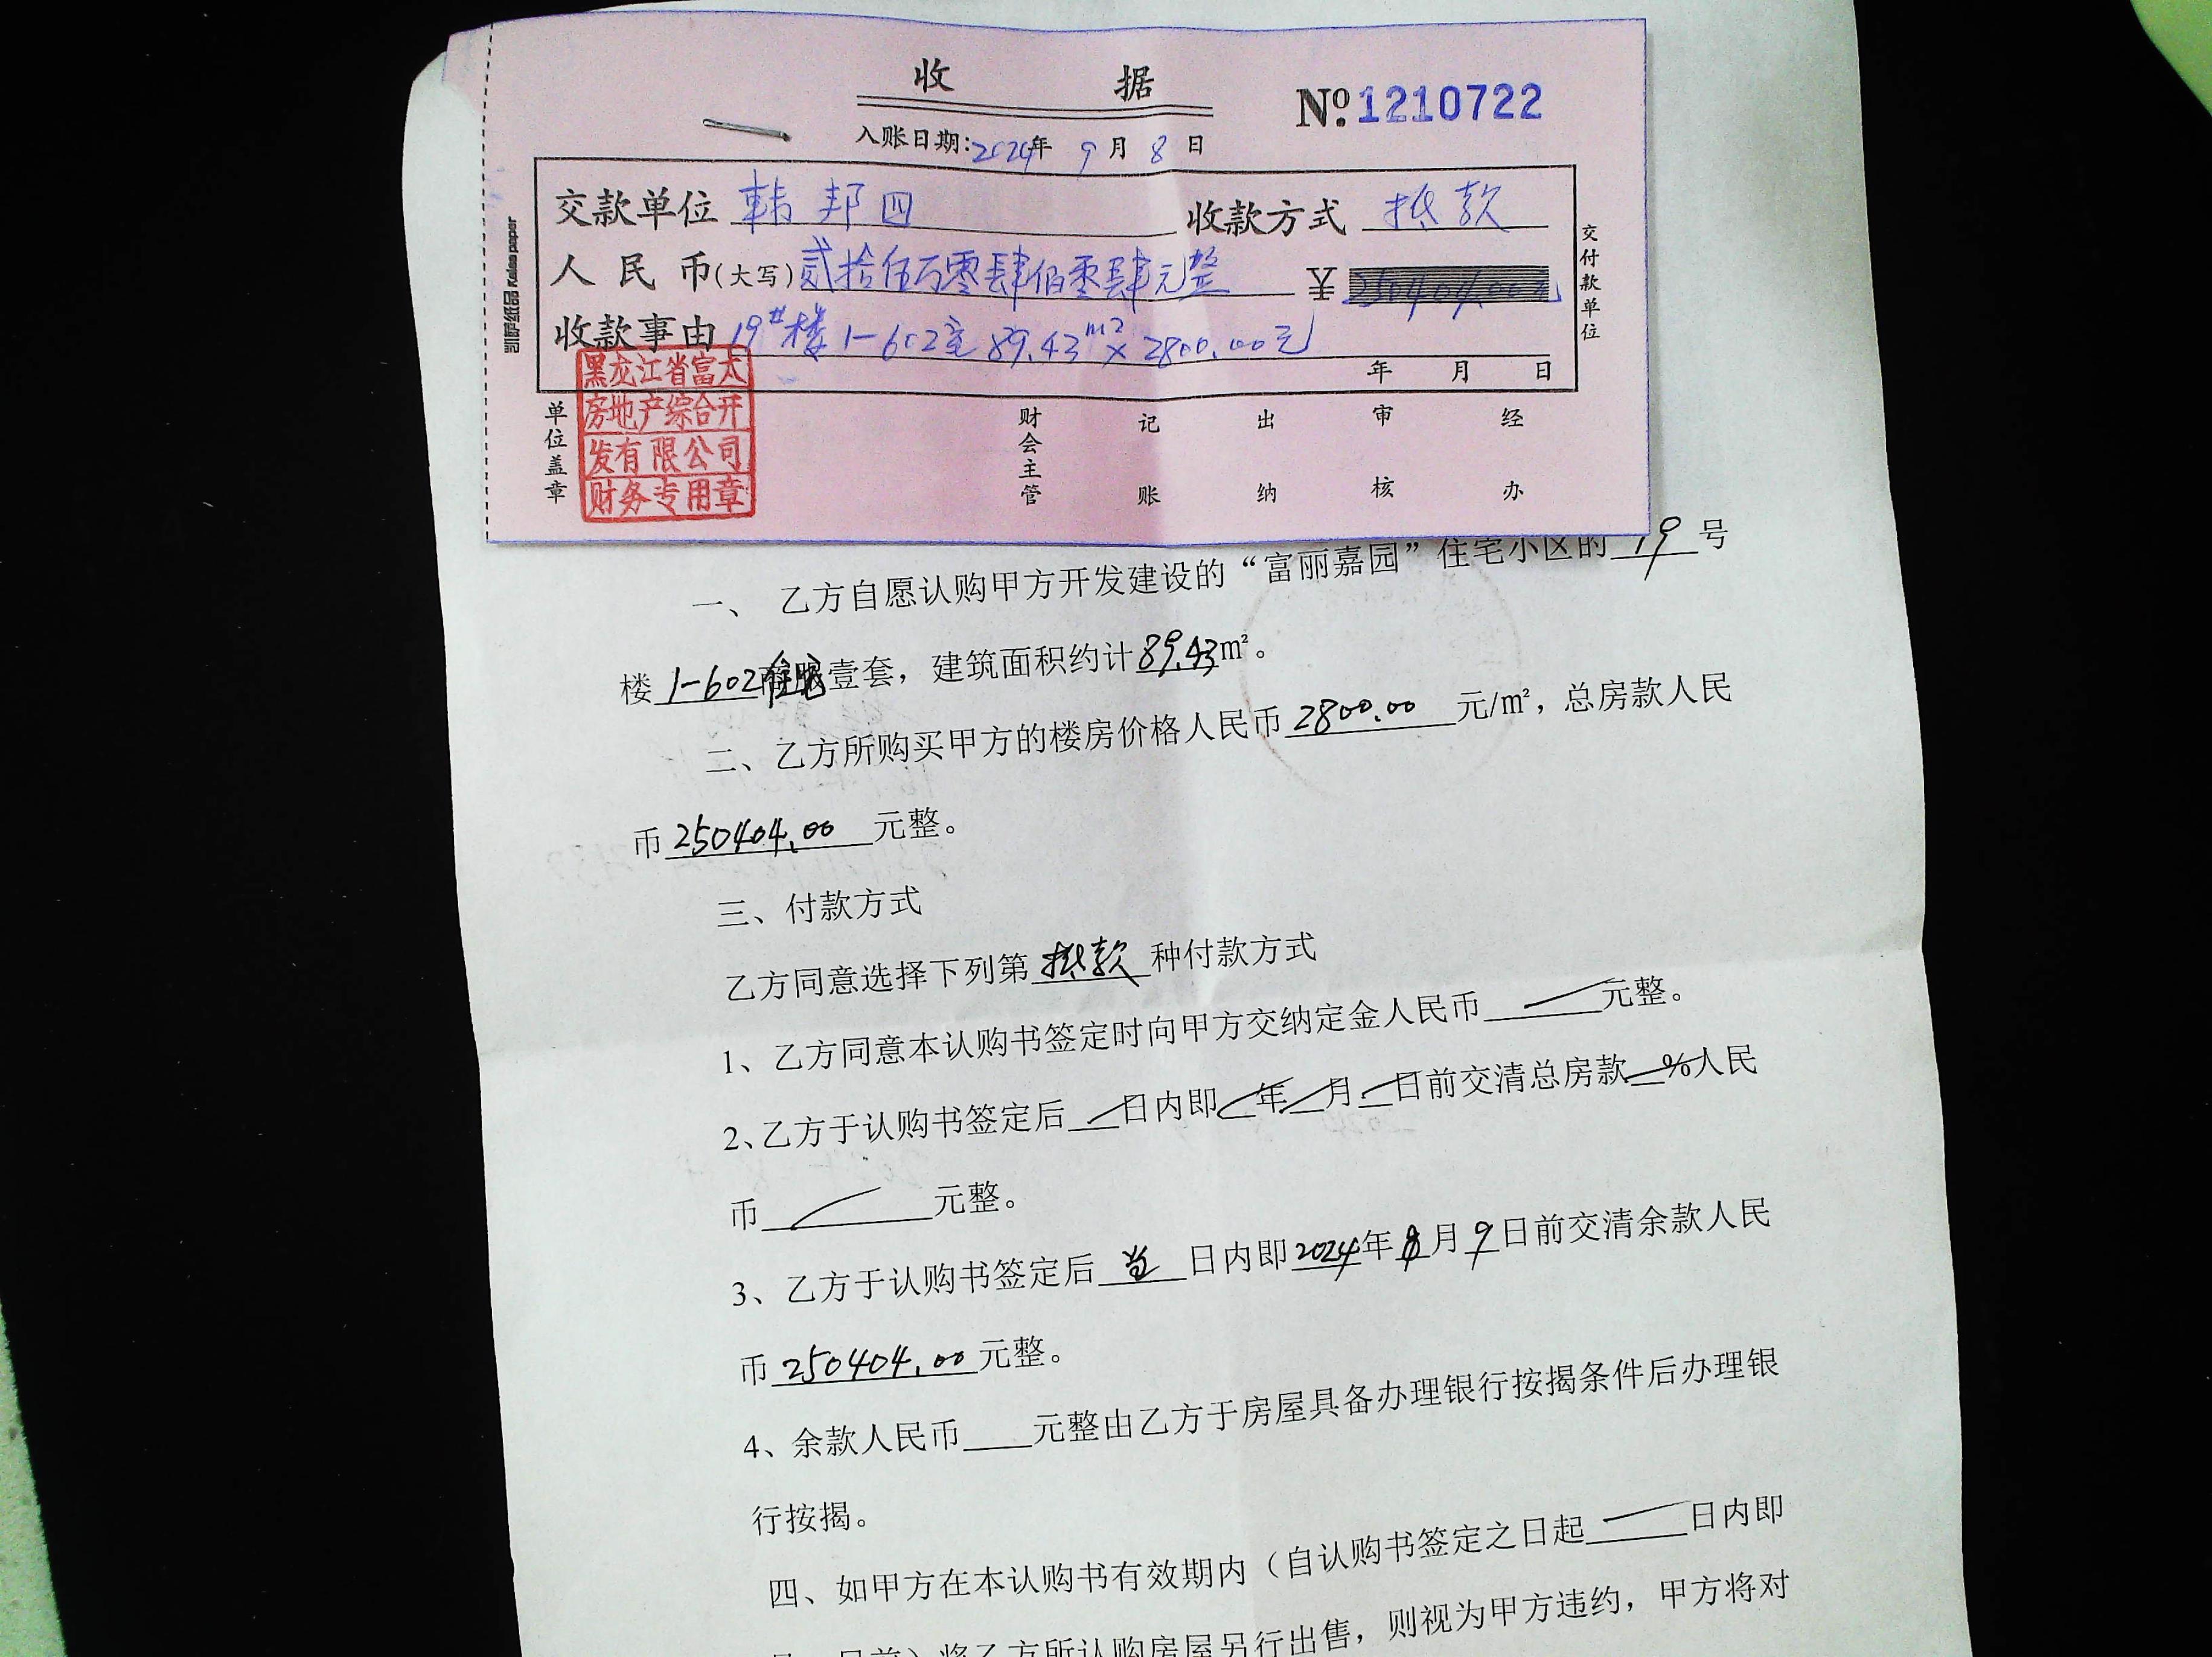 收 据
No.1210722
入账日期:2024年 9月 8日
交款单位 韩邦四 收款方式 抵款
人民币(大写)贰拾伍万零肆佰零肆元整 ¥ 250404.00元
收款事由 19#楼1-602室 89.43m²×2800.00元
年 月 日
交付款单位
单位盖章
黑龙江省富太
房地产综合开
发有限公司
财务专用章
财会主管 记账 出纳 审核 经办
一、 乙方自愿认购甲方开发建设的“富丽嘉园”住宅小区的 19 号
楼 1-602 住宅壹套，建筑面积约计89.43m²。
二、乙方所购买甲方的楼房价格人民币 2800.00 元/m²，总房款人民
币 250404.00 元整。
三、付款方式
乙方同意选择下列第 抵款 种付款方式
1、乙方同意本认购书签定时向甲方交纳定金人民币 元整。
2、乙方于认购书签定后 日内即 年 月 日前交清总房款 %人民
币 元整。
3、乙方于认购书签定后 当 日内即2024年 月9日前交清余款人民
币 250404.00 元整。
4、余款人民币 元整由乙方于房屋具备办理银行按揭条件后办理银
行按揭。
四、如甲方在本认购书有效期内（自认购书签定之日起 日内即
月 日前）将乙方所认购房屋另行出售，则视为甲方违约，甲方将对